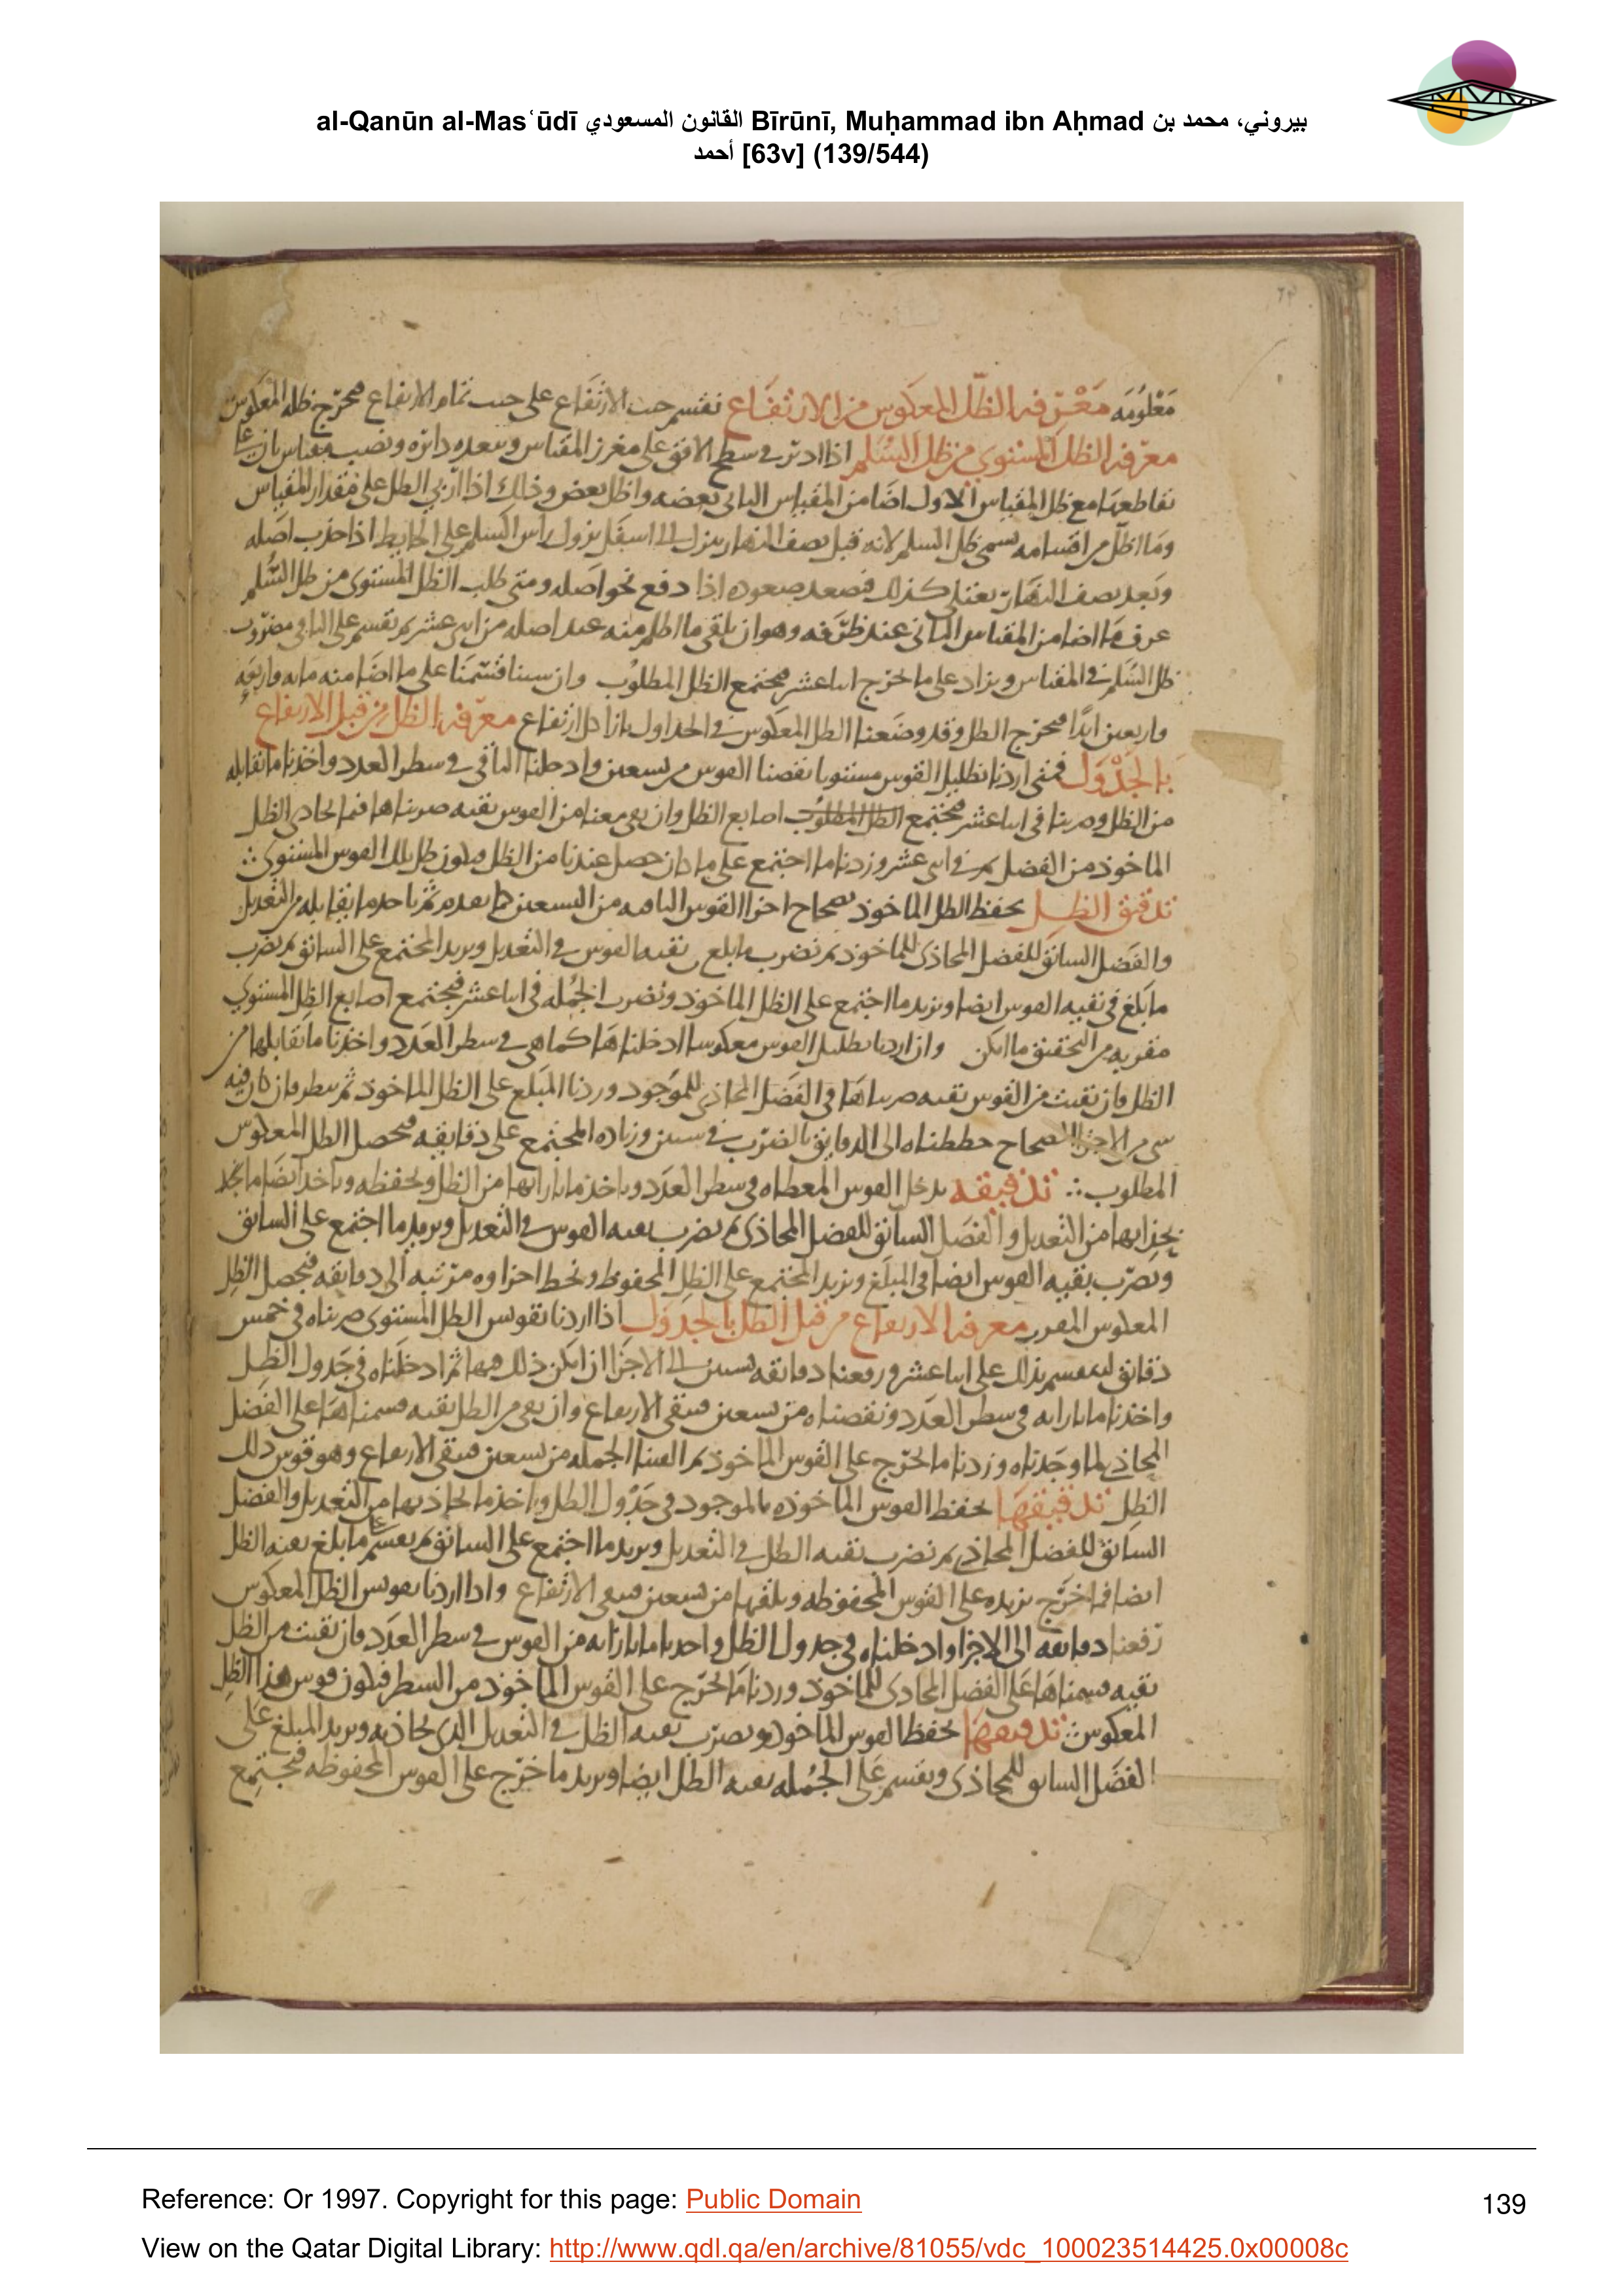 al-Qanūn al-Masʿūdī القانون المسعودي Bīrūnī, Muḥammad ibn Aḥmad بيروني، محمد بن
أحمد [63v] (139/544)
معلومه معرفه الظل المعكوس من الارتفاع نقسم جيب الارتفاع على جيب تمام الارتفاع فيخرج ظله المعكوس
معرفه الظل المستوي من ظل السلم اذا ادير في سطح الافق على مغرز المقياس وببعده دايره ونصب مقياس ثان على
تقاطعها مع ظل المقياس الاول اضا من المقياس الثاني بعضه واظل بعض وذلك اذا اربي الظل على مقدار المقياس
وما اظل من اقسامه سمي ظل السلم لانه قبل نصف النهار ينزل الى اسفل نزول راس السلم على الحايط اذا جذب اصله
وبعد نصف النهار يعتلي كذلك فصعد صعوده اذا دفع نحو اصله ومتى طلب الظل المستوى من ظل السلم
عرف ما اضا من المقياس الثاني عند طرفه وهو ان يلقى ما اظلم منه عند اصله من اثني عشر ثم نقسم على الباقي مضروب
ظل السلم في المقياس ويزاد على ما خرج اثنا عشر فيجتمع الظل المطلوب وان شينا قسمنا على ما اضا منه مايه واربعه
واربعين ابدا فيخرج الظل وقد وضعنا الظل المعكوس في الجداول بازا كل ارتفاع معرفه الظل من قبل الارتفاع
بالجدول فمتى اردنا تظليل القوس مستويا نقصنا القوس من تسعين وادخلنا الباقي في سطر العدد واخذنا ما تقابله
من الظل وضربنا في اثنا عشر فيجتمع الظل المطلوب اصابع الظل وان بقي معنا من القوس بقيه ضربناها فيما يحاذي الظل
الماخوذ من الفضل ثم في اثني عشر وزدنا ما اجتمع على ما كان حصل عندنا من الظل فيكون ظل تلك القوس المستوي
تدقيق الظل يحفظ الظل الماخوذ بصحاح اجزا القوس الباقيه من التسعين كما تقدم ثم ناخذ ما يقابله من التعديل
والفضل السابق للفضل المحاذى للماخوذ ثم نضرب ما بلغ بقيه القوس في التعديل ويزيد المجتمع على السابق ثم نضرب
ما بلغ في بقيه القوس ايضا ونزيد ما اجتمع على الظل الماخوذ ونضرب الجمله في اثنا عشر فيجتمع اصابع الظل المستوي
مقربه من التحقيق ما امكن وان اردنا تظليل القوس معكوسا ادخلناها كما هي في سطر العدد واخذنا ما تقابلها من
الظل فان بقيت من القوس بقيه ضربناها في الفضل المحاذي للموجود وزدنا المبلغ على الظل الماخوذ ثم ننظر فان كان فيه
شي من الاجزا الصحاح حططناه الى الدقايق بالضرب في ستين وزياده المجتمع على دقايقه فيحصل الظل المعكوس
المطلوب تدقيقه يدخل القوس المعطاه في سطر العدد وياخذ ما بازايها من الظل ويحفظه وياخذ ايضا ما نجد
بحذايها من التعديل والفضل السابق للفضل المحاذى ثم نضرب بقيه القوس في التعديل ونزيد ما اجتمع على السابق
ونضرب بقيه القوس ايضا في المبلغ ونزيد المجتمع على الظل المحفوظ ونحط اجزاوه مرتبه الى دقايقه فيحصل الظل
المعكوس المقرب معرفه الارتفاع من قبل الظل بالجدول اذا اردنا تقويس الظل المستوى ضربناه في خمس
دقايق لينقسم بذلك على اثنا عشر ورفعنا دقايقه لستين الى الاجزا ان امكن ذلك فيها ثم ادخلناه في جدول الظل
واخذنا ما بازايه في سطر العدد ونقصناه من تسعين فيبقى الارتفاع وان بقي من الظل بقيه قسمناها على الفضل
المحاذي لما وجدناه وزدنا ما يخرج على القوس الماخوذ ثم القينا الجمله من تسعين فيبقى الارتفاع وهو قوس ذلك
الظل تدقيقها يحفظ القوس الماخوذه بالموجود في جدول الظل وياخذ ما يحاذيها من التعديل والفضل
السابق للفضل المحاذي ثم نضرب بقيه الظل في التعديل ونزيد ما اجتمع على السابق ثم نقسم على ما بلغ بقيه الظل
ايضا فما خرج نزيده على القوس المحفوظه ونلقيها من تسعين فيبقى الارتفاع واذا اردنا تقويس الظل المعكوس
رفعنا دقايقه الى الاجزا وادخلناه في جدول الظل واخذنا ما بازايه من القوس في سطر العدد فان بقيت من الظل
بقيه قسمناها على الفضل المحاذى للماخوذ وزدنا ما يخرج على القوس الماخوذ من السطر فيكون قوس هذا الظل
المعكوس تدقيقها يحفظ القوس الماخوذه ونضرب بقيه الظل في التعديل الذي يحاذيه ونزيد المبلغ على
الفضل السابق للمحاذى ونقسم على الجمله بقيه الظل ايضا ونزيد ما خرج على القوس المحفوظه فيجتمع
Reference: Or 1997. Copyright for this page: Public Domain
139
View on the Qatar Digital Library: http://www.qdl.qa/en/archive/81055/vdc_100023514425.0x00008c